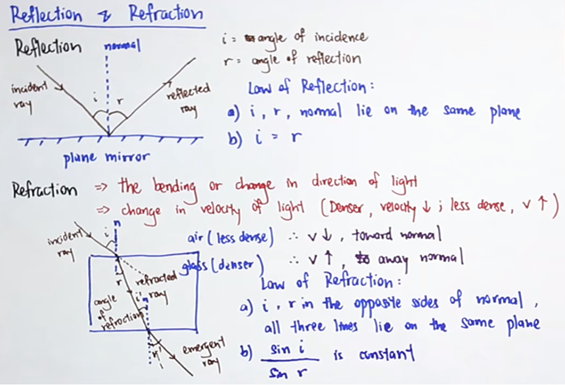 Reflection & Refraction
Reflection
normal
i = angle of incidence
r = angle of reflection
incident ray
i
r
reflected ray
Law of Reflection:
a) i, r, normal lie on the same plane
b) i = r
plane mirror
Refraction ⇒ the bending or change in direction of light
⇒ change in velocity of light (Denser, velocity ↓ ; less dense, v ↑)
n
incident ray
i
air (less dense) ∴ v ↓, toward normal
glass (denser) ∴ v ↑, away normal
r
refracted ray
angle of refraction
i'
n
Law of Refraction:
a) i, r in the opposite sides of normal,
all three lines lie on the same plane
b) sin i / sin r is constant
emergent ray